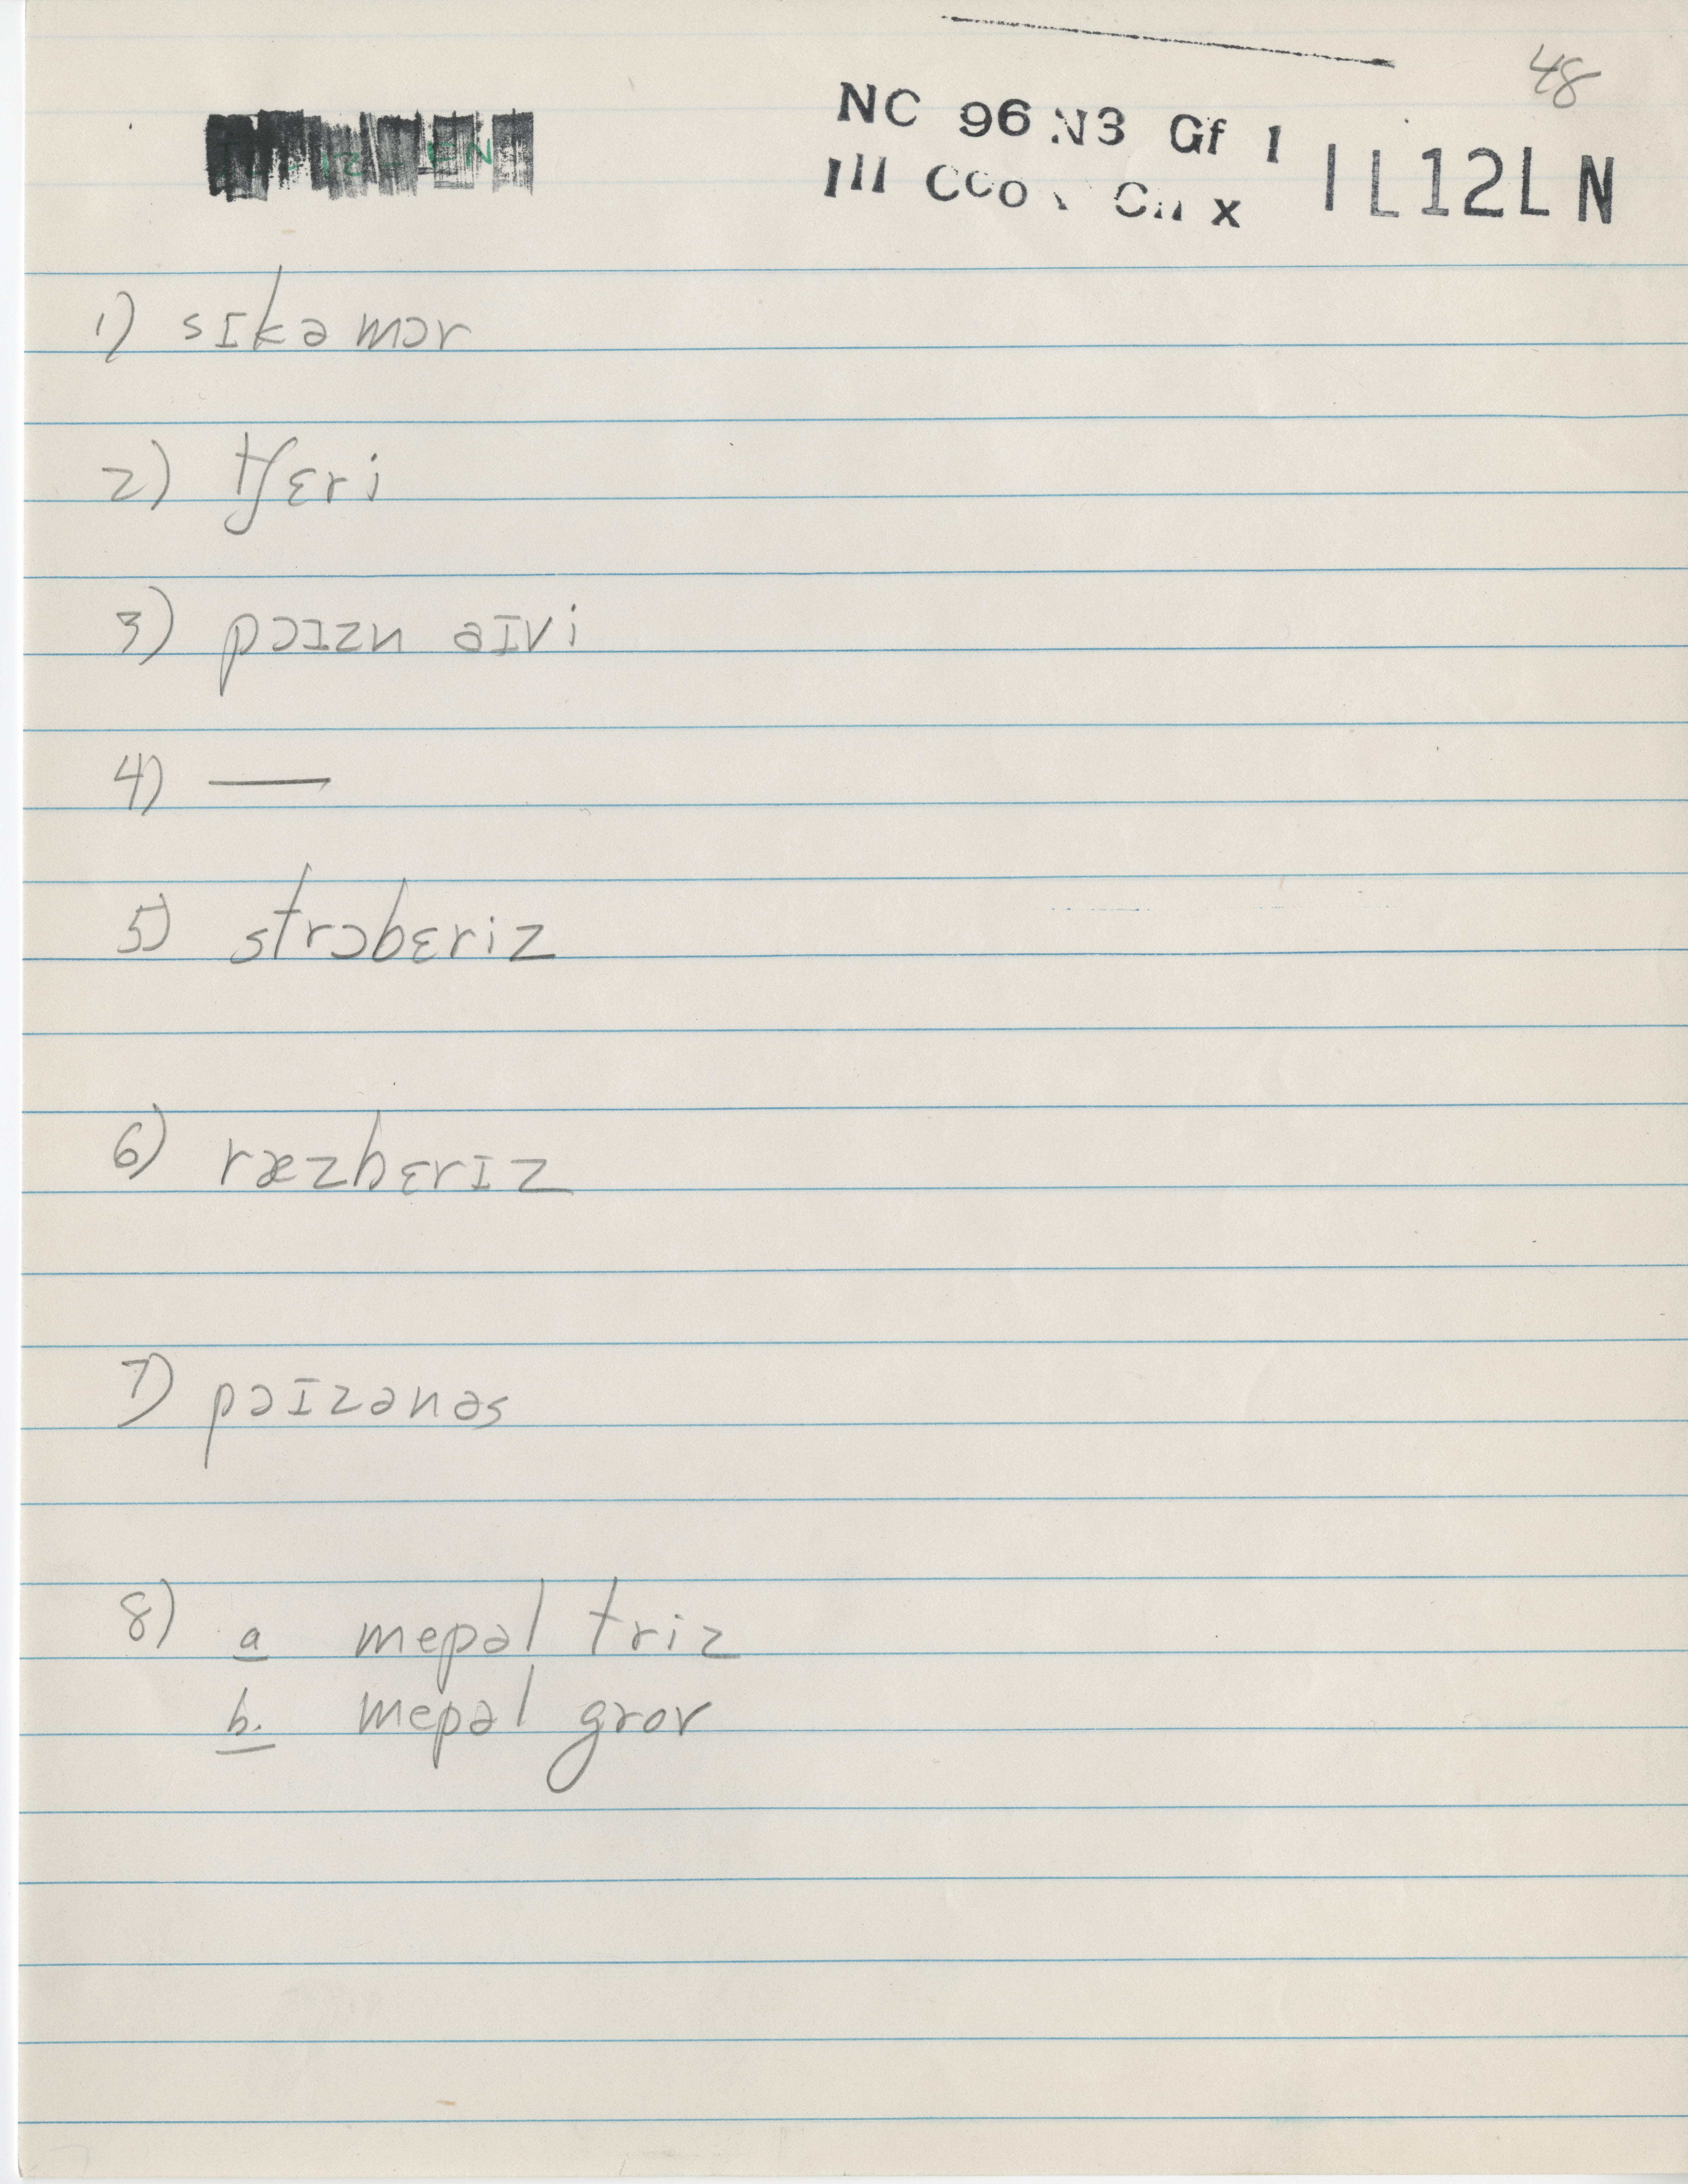 48
NC 96 N3 Gf 1
Ill IL12LN
1) sɪkəmɔr
2) tʃɛri
3) pɔɪzn aɪvi
4) —
5) strɔbɛriz
6) ræzbɛrɪz
7) pɔɪzənəs
8) a mepəl triz
b. mepəl grov